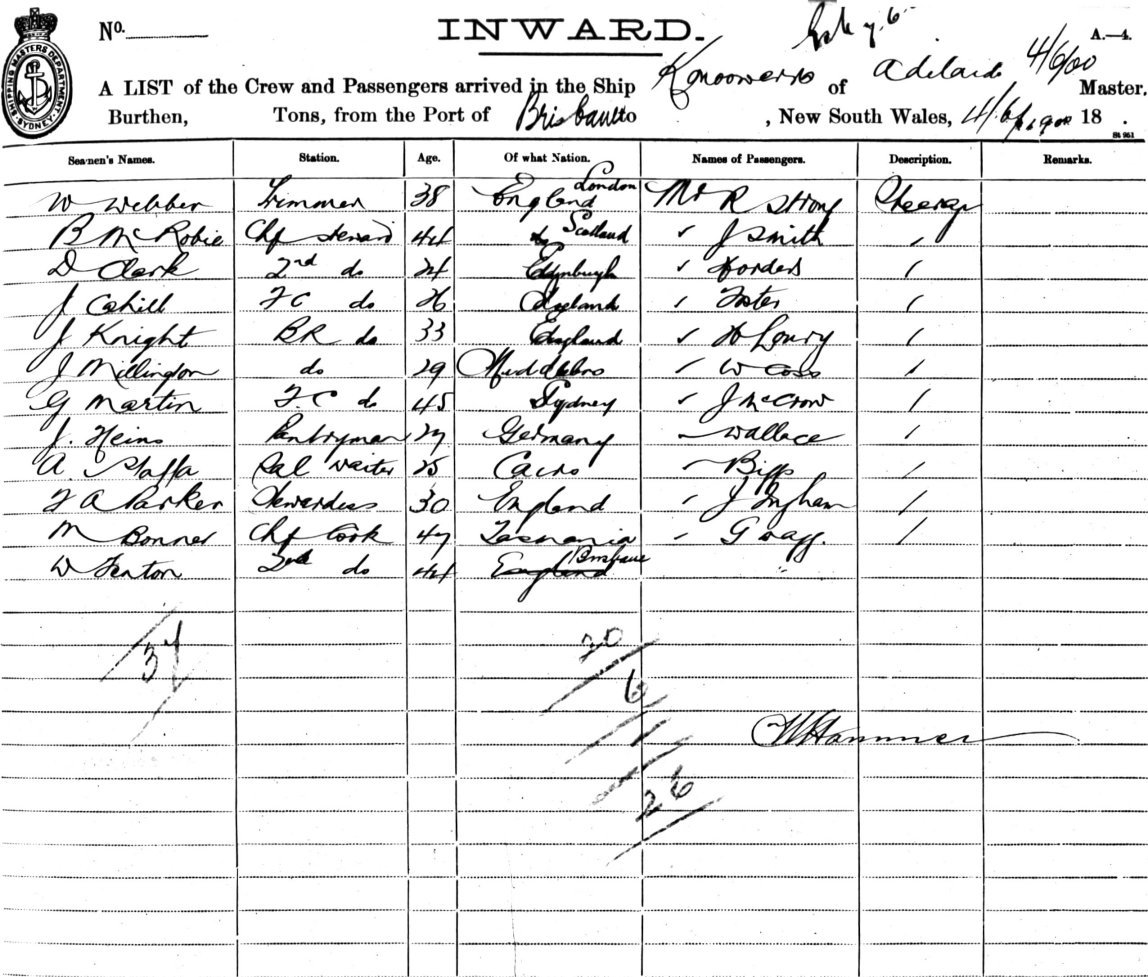 SHIPPING MASTERS DEPARTMENT. SYDNEY.
No.
INWARD.
A.—4.
A LIST of the Crew and Passengers arrived in the Ship Konoowarra of Adelaide 4/6/00 Master,
Burthen, Tons, from the Port of Brisbane to , New South Wales, 4/6/1900 18 .
Seamen's Names. Station. Age. Of what Nation. Names of Passengers. Description. Remarks.
W Webber Trimmer 38 England London Mr R Strong Steerage
B McRobie Chf Steward 44 do Scotland ✓ J Smith /
D Clark 2nd do 24 Edinburgh ✓ Horders /
J Cahill FC do 26 England / Foster /
J Knight BR do 33 England ✓ H Lowry /
J Millington do 29 Middlesbro / W Coss /
G Martin FC do 45 Sydney ✓ J McCrow /
J. Heins Pantryman 27 Germany Wallace /
A. Staffa Sal Waiter 25 Cairo /
F A Parker Stewardess 30 England / J Ingham /
M Bonner Chf Cook 47 Tasmania G Wagg. /
W Fenton 2nd do 44 England Brisbane "
37
20
6
1
26